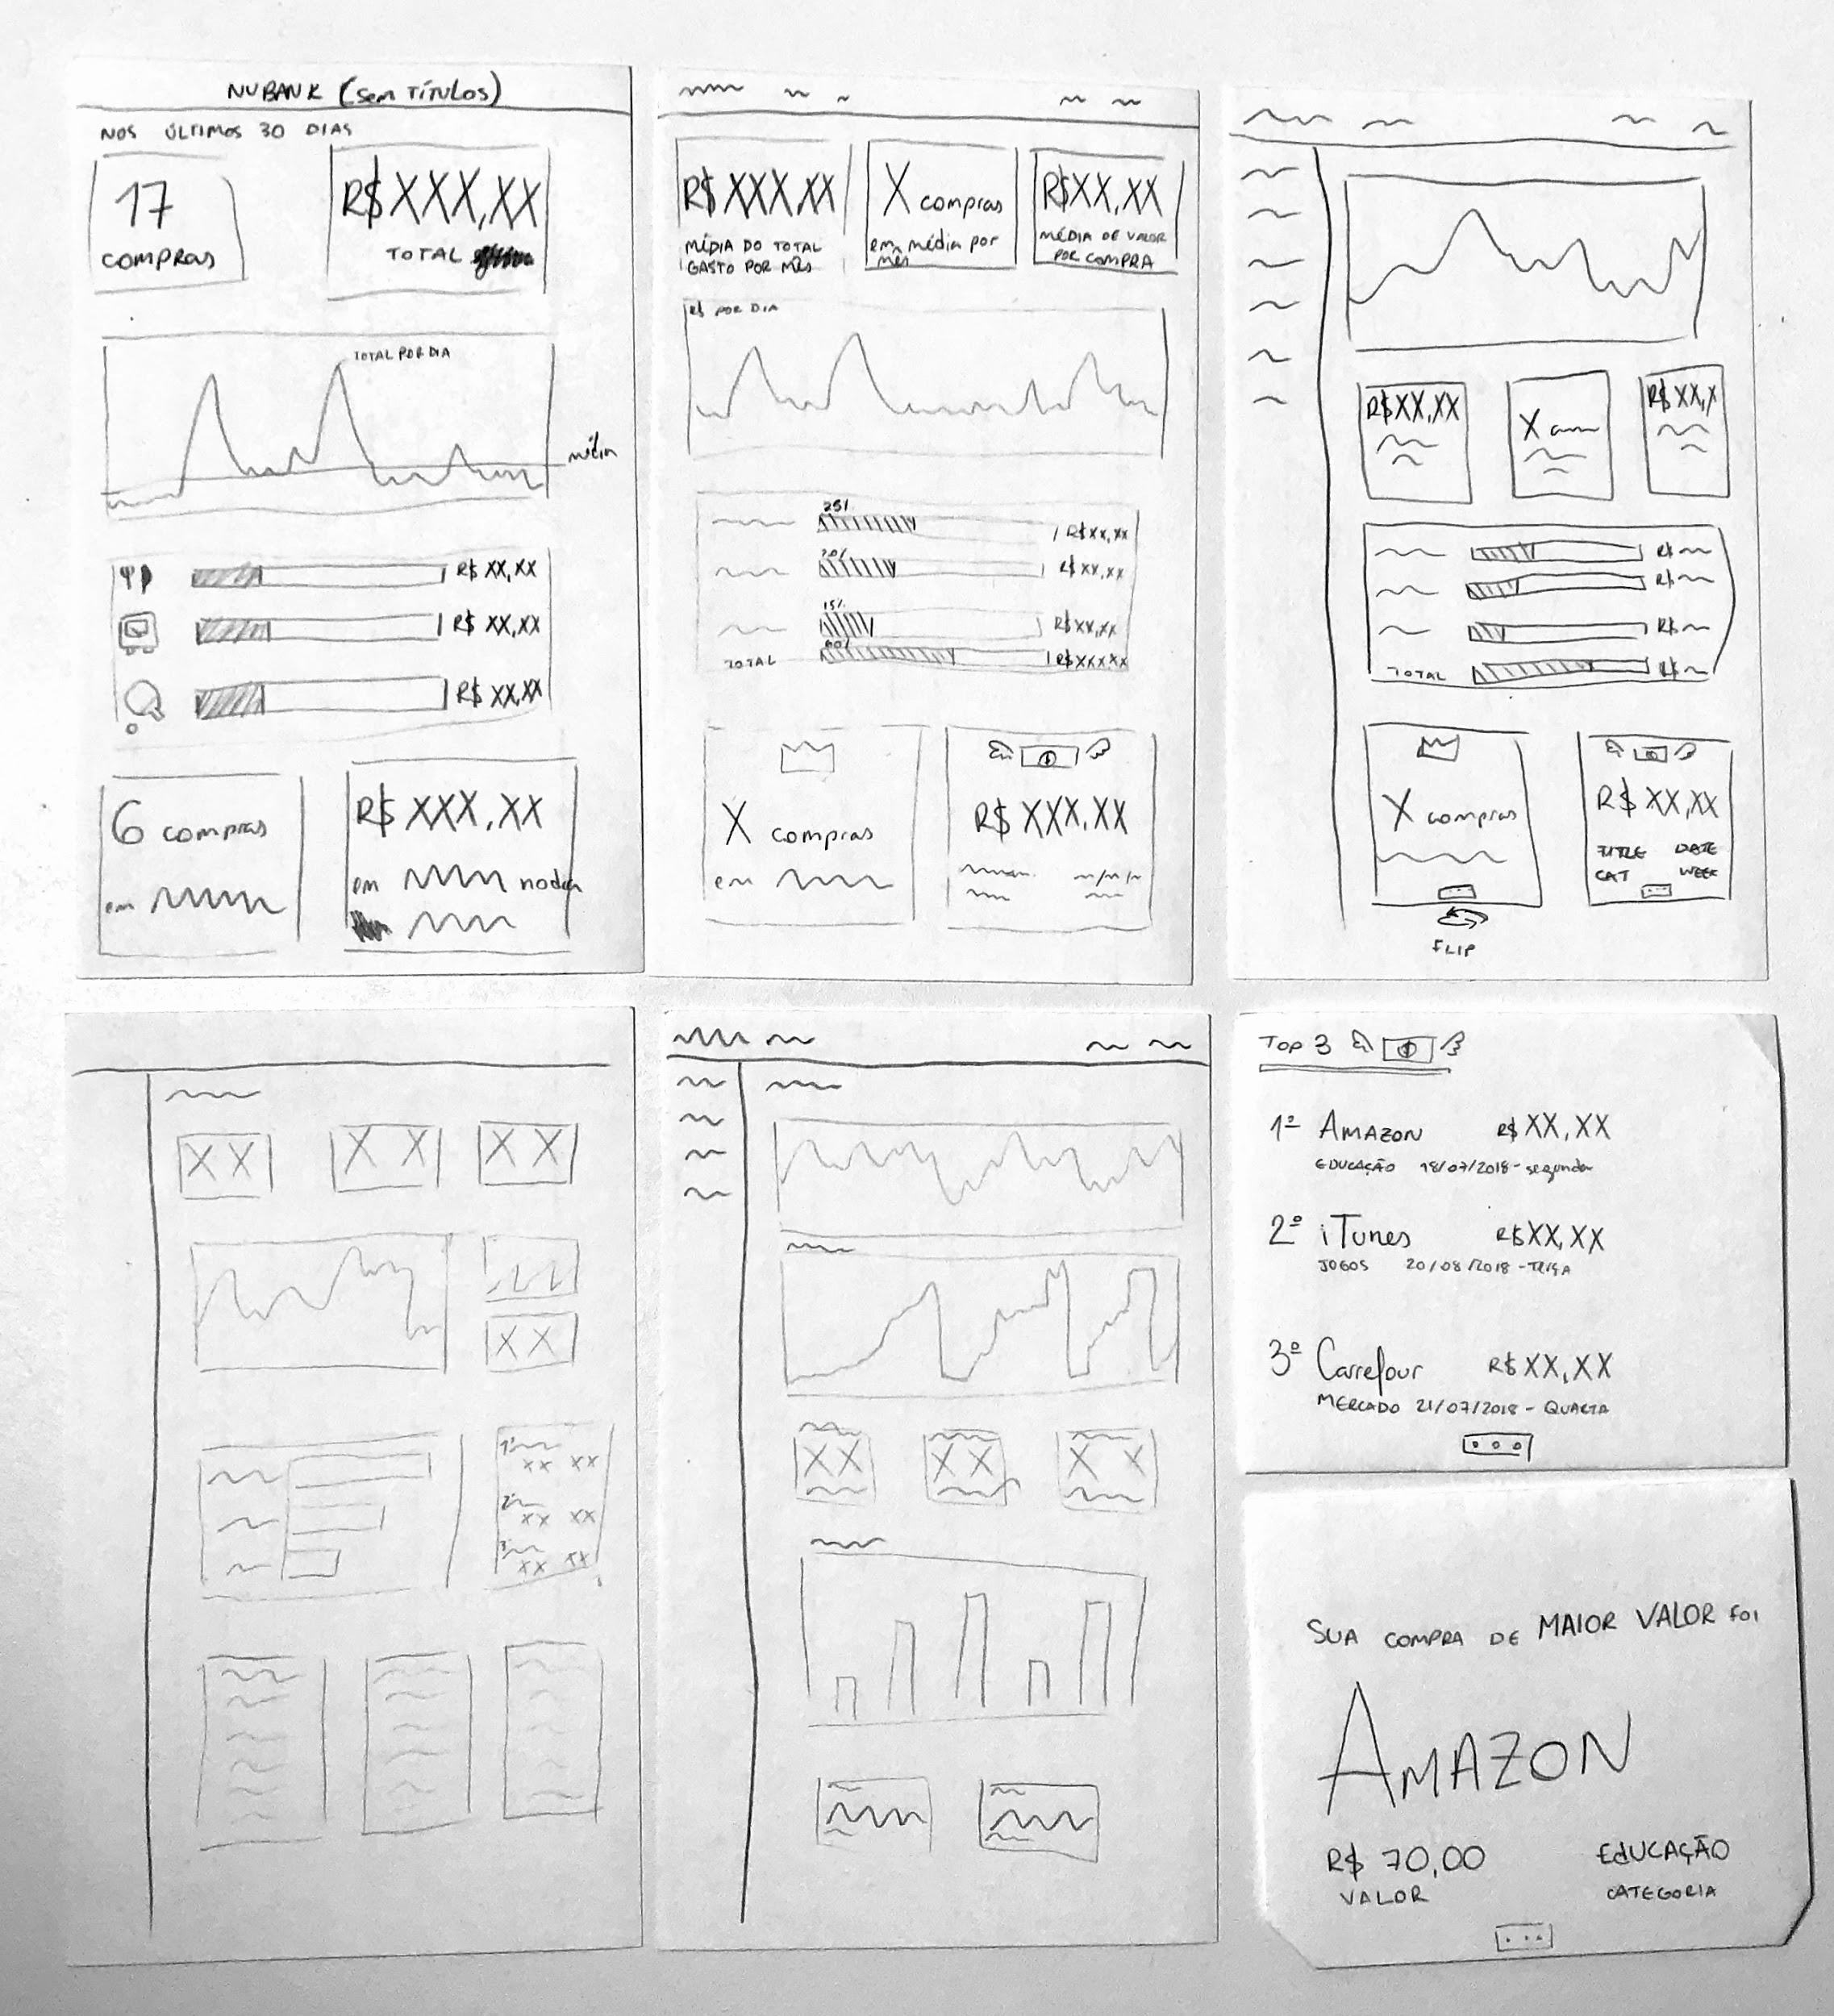 NUBANK (SEM TÍTULOS)
NOS ÚLTIMOS 30 DIAS
17
COMPRAS
R$XXX,XX
TOTAL
TOTAL POR DIA
média
R$ XX,XX
R$ XX,XX
R$ XX,XX
6 compras
em
R$ XXX,XX
em
no dia
R$ XXX,XX
MÍDIA DO TOTAL
GASTO POR MÊS
X compras
em média por
mês
R$XX,XX
MÉDIA DE VALOR
POR COMPRA
R$ POR DIA
25%
R$XX,XX
20%
R$XX,XX
15%
R$XX,XX
60%
TOTAL
R$XXXXX
X compras
em
R$ XXX,XX
R$XX,XX
X
R$ XX,X
R$
R$
R$
TOTAL
R$
X compras
FLIP
R$ XX,XX
TITLE DATE
CAT WEEK
XX
X X
X X
XX
1º
XX XX
2º
XX XX
3º
XX XX
XX
XX
X X
TOP 3
1º AMAZON R$ XX,XX
EDUCAÇÃO 18/07/2018 - segunda
2º iTunes R$XX,XX
JOGOS 20/08/2018 - TERÇA
3º Carrefour R$XX,XX
MERCADO 21/07/2018 - QUARTA
SUA COMPRA DE MAIOR VALOR FOI
AMAZON
R$ 70,00
VALOR
EDUCAÇÃO
CATEGORIA